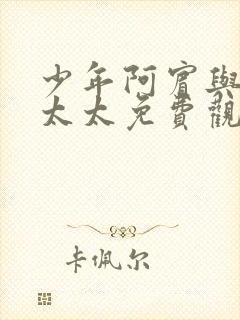 少年阿賓與
太太免費觀
卡佩尔